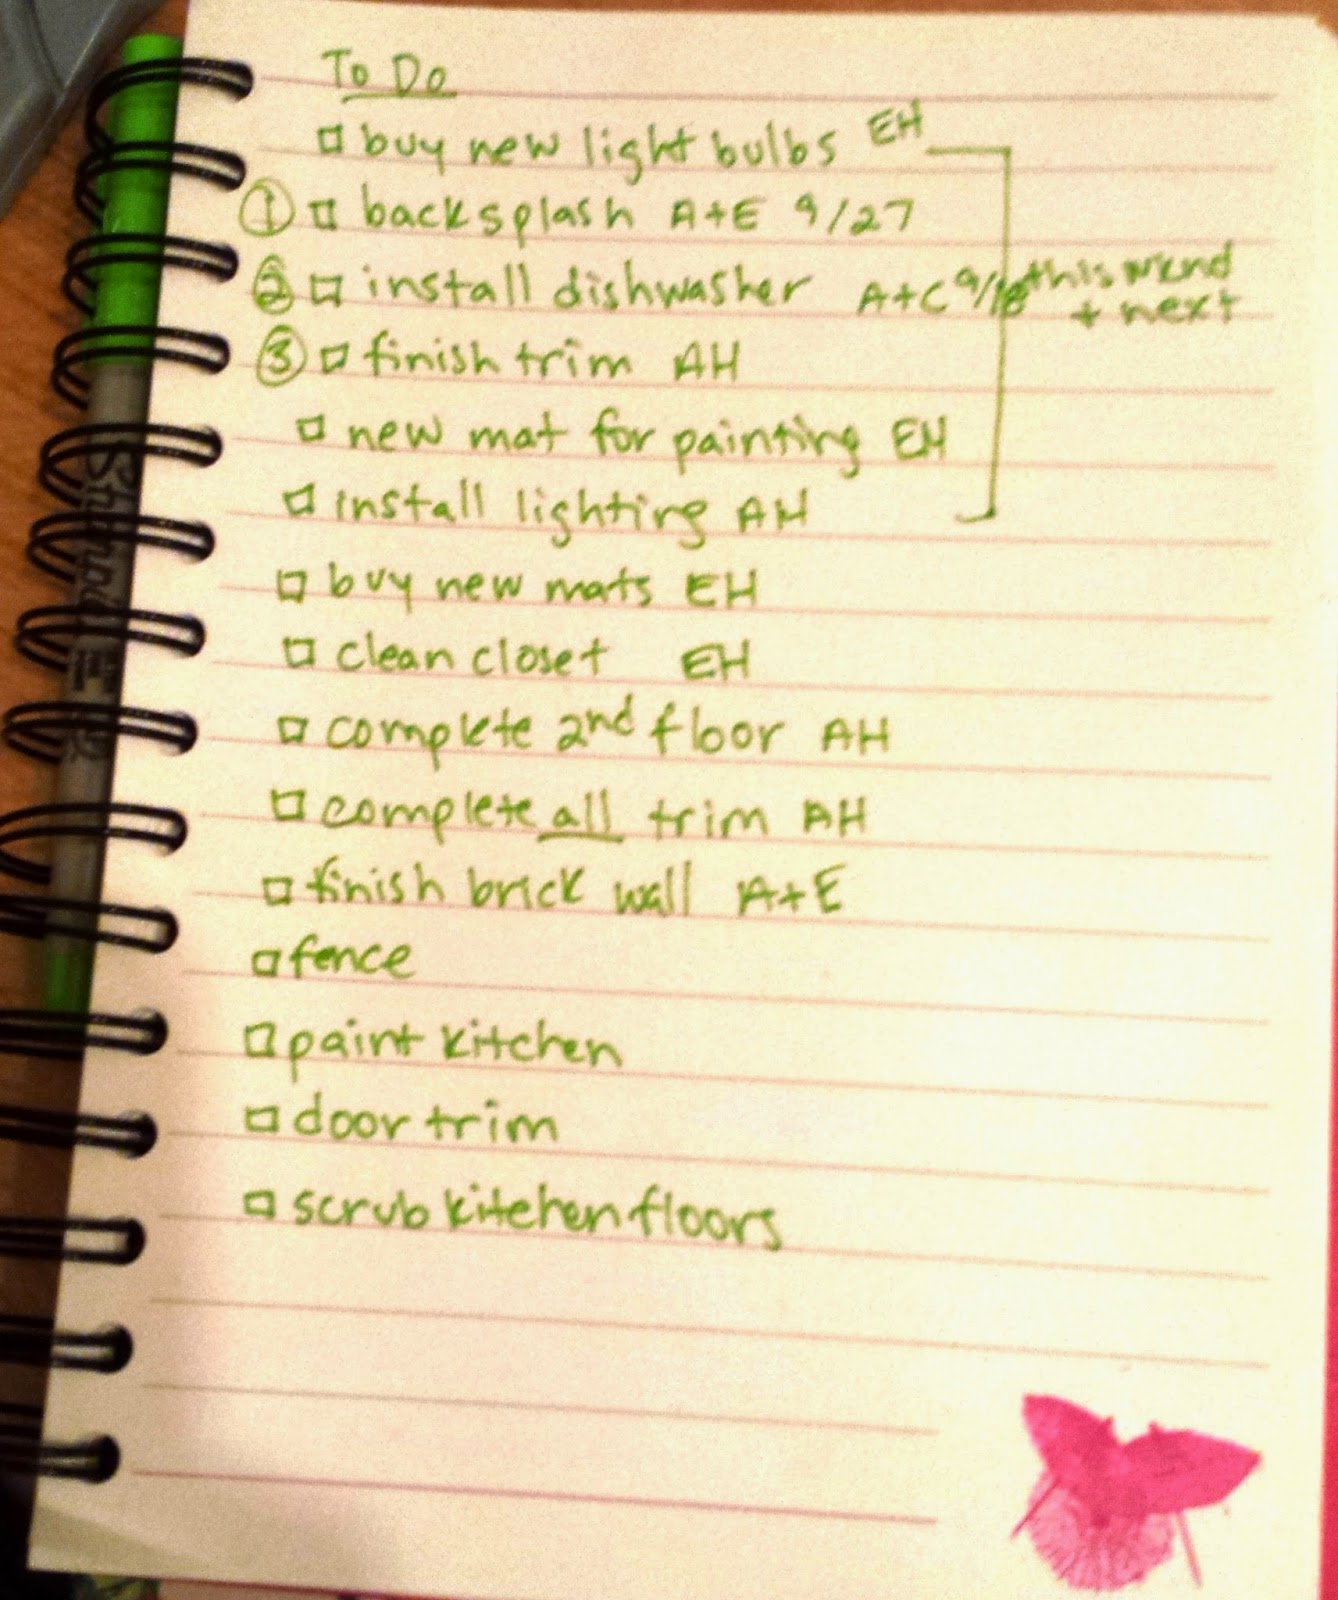 To Do
buy new light bulbs EH
① backsplash A+E 9/27
② install dishwasher A+C 9/18 this wknd
+ next
③ finish trim AH
new mat for painting EH
install lighting AH
buy new mats EH
clean closet EH
complete 2nd floor AH
complete all trim AH
finish brick wall A+E
fence
paint kitchen
door trim
scrub kitchen floors